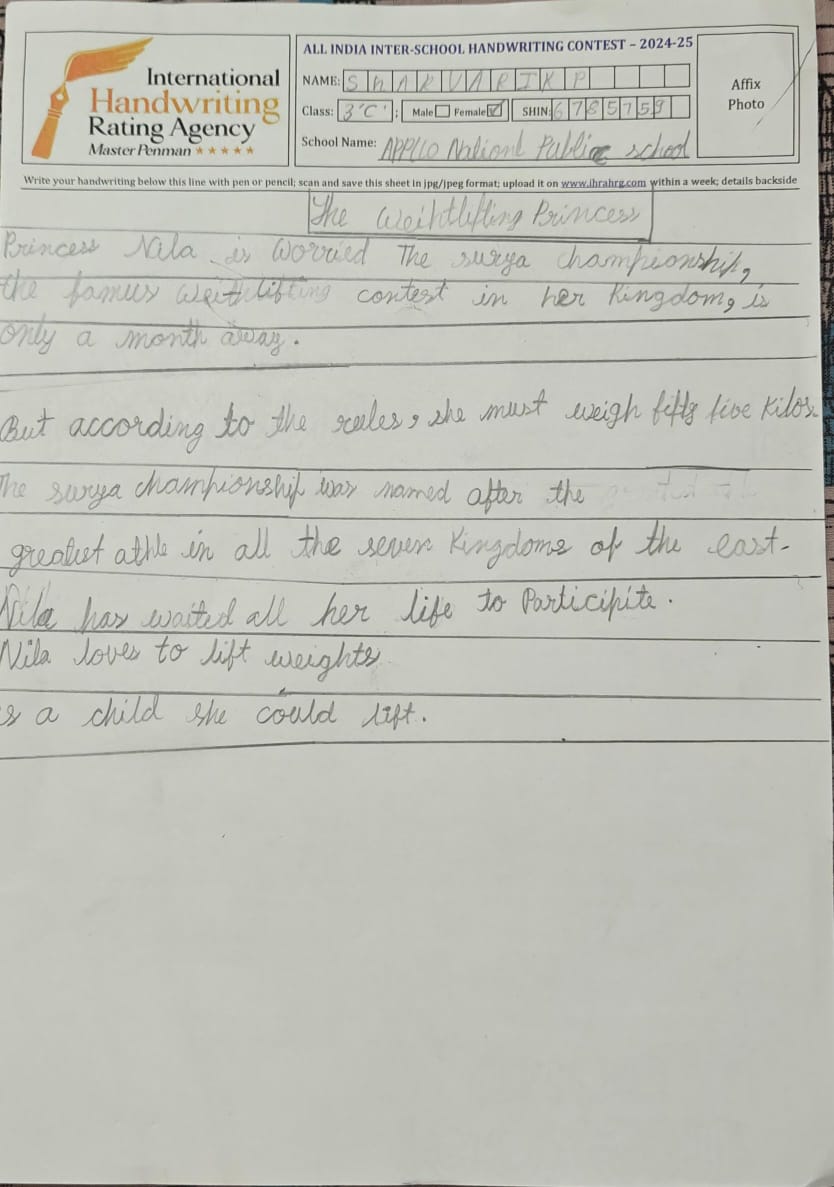 International
Handwriting
Rating Agency
Master Penman ★★★★★
ALL INDIA INTER-SCHOOL HANDWRITING CONTEST – 2024-25
NAME: ShARVARIKP
Class: 3'C' : Male Female ✓ SHIN: 6785759
School Name: APPllO National Public school
Affix
Photo
Write your handwriting below this line with pen or pencil; scan and save this sheet in jpg/jpeg format; upload it on www.ihrahrg.com within a week; details backside
The Weihtlifting Princess
Princess Nila is worried The surya championship,
the famus weihtlifting contest in her Kingdom, is
only a month away.
But according to the rules, she must weigh fifty five Kilos.
The surya championship was named after the
greatest athle in all the seven Kingdoms of the east.
Nila has waited all her life to Participite.
Nila loves to lift weights
s a child she could lift.